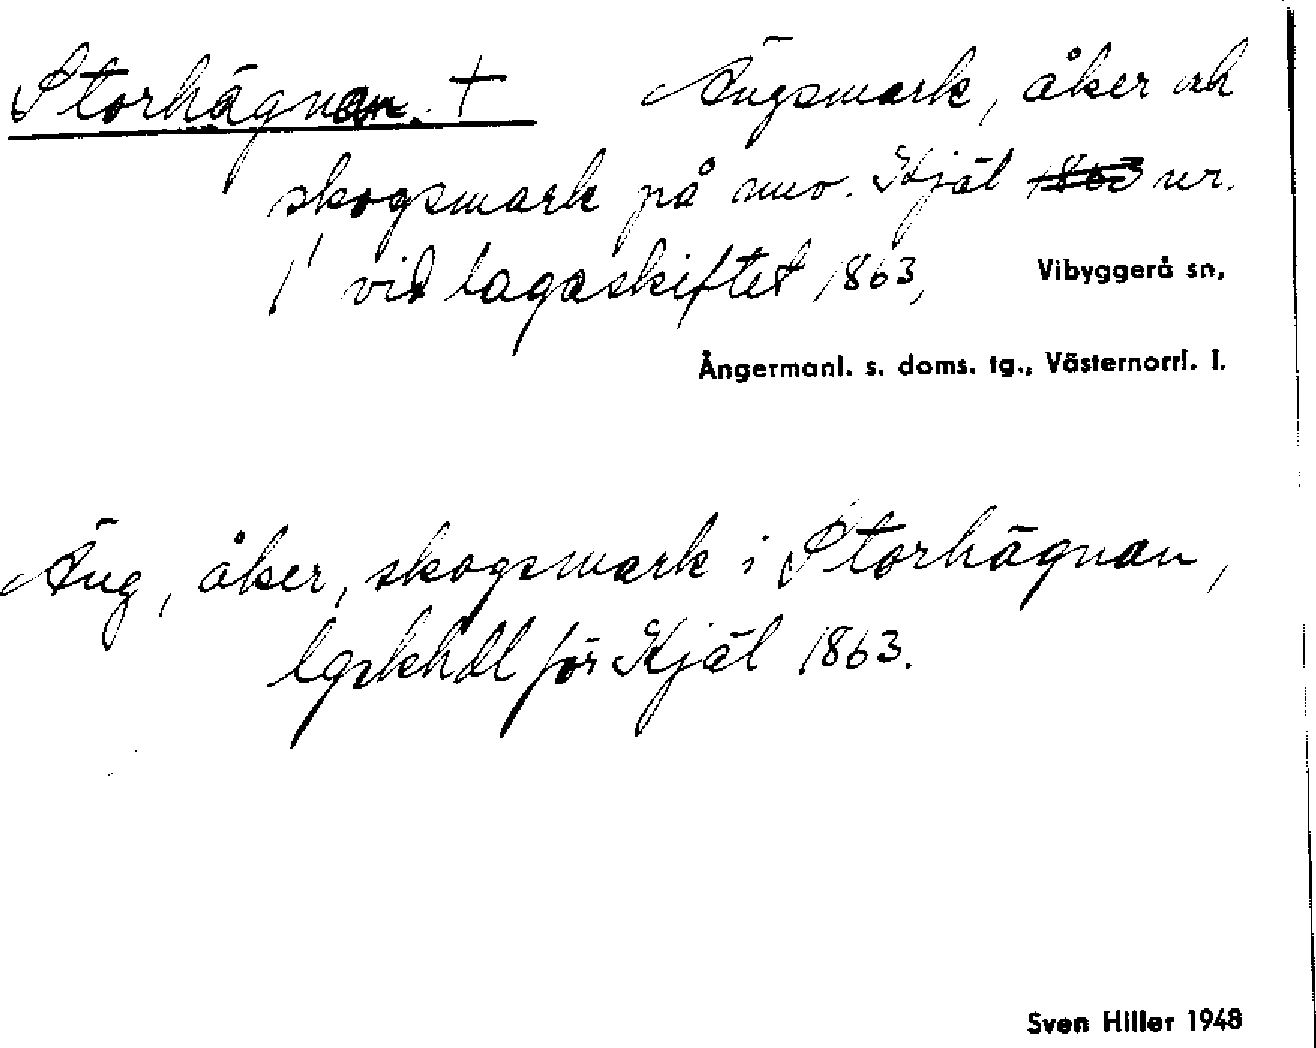 Storhägnan. + Ängsmark, åker och
skogsmark på mo. Kjäl 1863 nr.
1 vid lagaskiftet 1863, Vibyggerå sn,
Ångermanl. s. doms. tg., Västernorrl. l.
Äng, åker, skogsmark i Storhägnan,
lgskhdl för Kjäl 1863.
Sven Hiller 1948